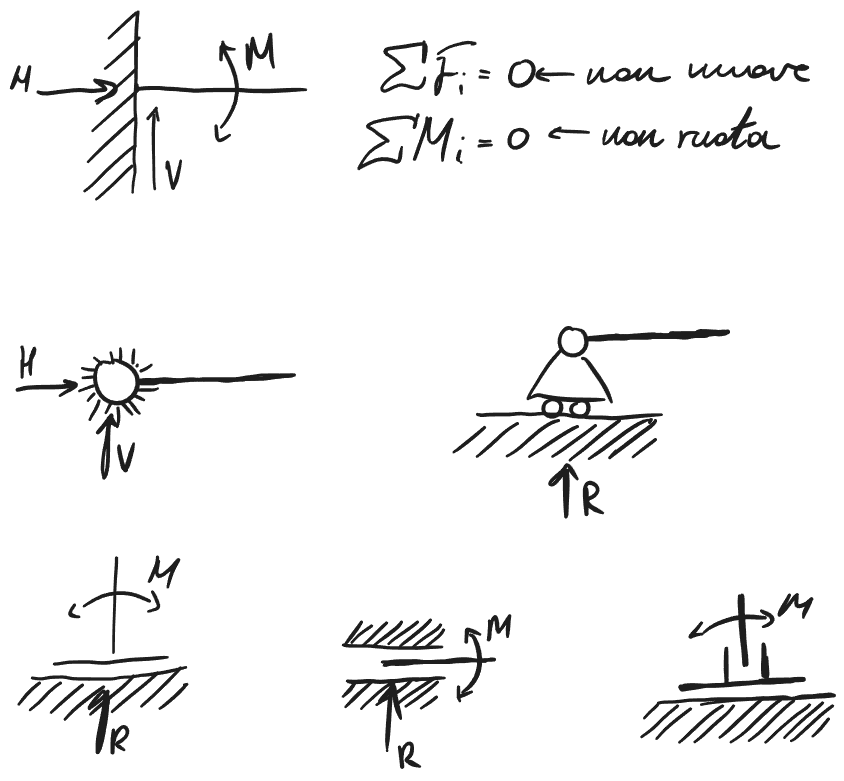 H M ΣF̄ᵢ = 0 ← non muove
V ΣMᵢ = 0 ← non ruota
H
V
R
M
R
M
R
M